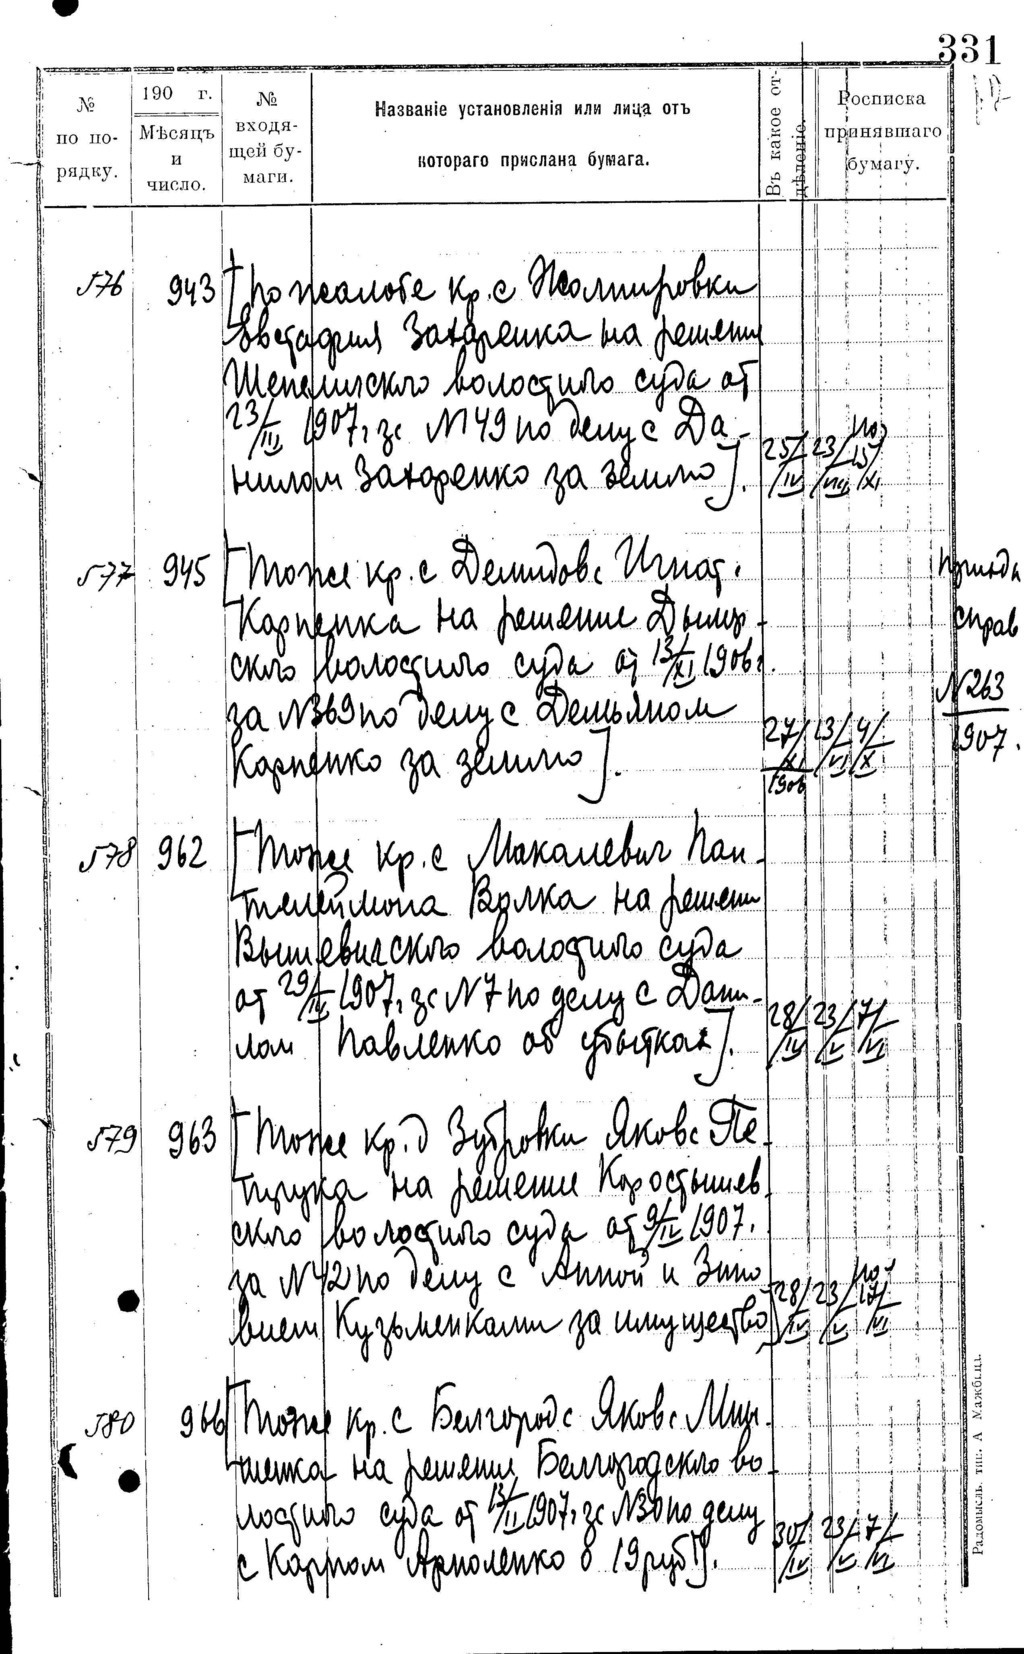 331
№ по порядку.
190 г.
Мѣсяцъ и число.
№ входящей бумаги.
Названіе установленія или лица отъ
котораго прислана бумага.
Въ какое отдѣленіе.
Росписка принявшаго бумагу.
576 943 [По жалобе кр. с
Евстафия Захаренка на решение
волостного суда от
23/III 1907 г. за N 49 по делу с Да-
нилом Захаренко за землю]. 25/IV 23/VIII по 15/XI
577 945 [Тоже кр. с Демидова Игнат.
Карпенка на решение Дымер-
ского волостного суда от 13/XI 1906 г.
за N 369 по делу с Демьяном
Карпенко за землю]. 27/XI 1906 13/VI 4/X
справ
N 263
1907.
578 962 [Тоже кр. с Макалевич Пан-
телеймона Волка на решение
Вышевичского волостного суда
от 29/III 1907 г. за N 7 по делу с Дани-
лом Павленко об убытках]. 28/IV 23/V 7/VI
579 963 [Тоже кр. д Зубровки Якова Пе-
трука на решение Коростышев-
ского волостного суда от 9/IV 1907.
за N 42 по делу с Анной и Зино
вием Кузьменками за имущество] 28/IV 23/V по 17/VI
580 966 [Тоже кр. с Белгорода Якова Миш-
шенка на решение Белгородского во-
лостного суда от 13/II 1907 г. за N 30 по делу
с Карпом о 19 руб]. 30/IV 23/V 7/VI
Радомысль тип. А Мажбиц.